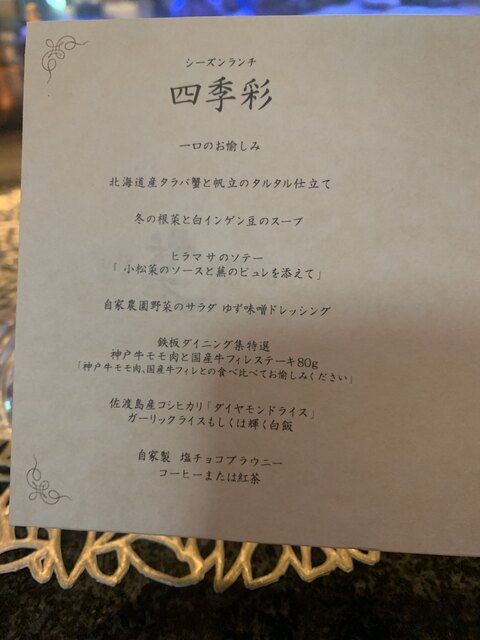 シーズンランチ
四季彩
一口のお愉しみ
北海道産タラバ蟹と帆立のタルタル仕立て
冬の根菜と白インゲン豆のスープ
ヒラマサのソテー
「小松菜のソースと蕪のピュレを添えて」
自家農園野菜のサラダ ゆず味噌ドレッシング
鉄板ダイニング集特選
神戸牛モモ肉と国産牛フィレステーキ80g
「神戸牛モモ肉、国産牛フィレとの食べ比べてお愉しみください」
佐渡島産コシヒカリ「ダイヤモンドライス」
ガーリックライスもしくは輝く白飯
自家製 塩チョコブラウニー
コーヒーまたは紅茶